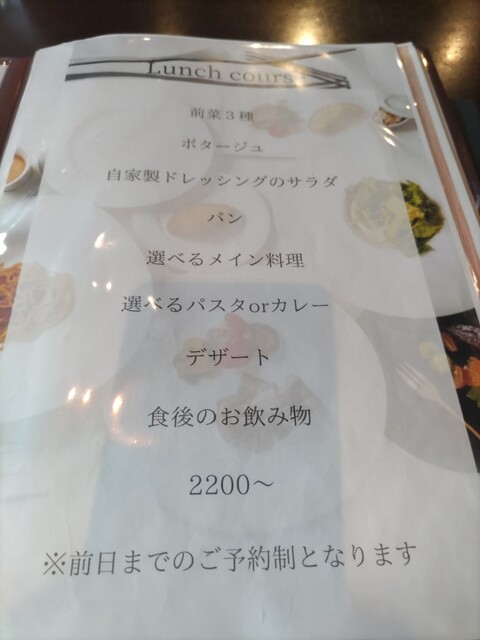 Lunch cours
前菜３種
ポタージュ
自家製ドレッシングのサラダ
パン
選べるメイン料理
選べるパスタorカレー
デザート
食後のお飲み物
2200～
※前日までのご予約制となります